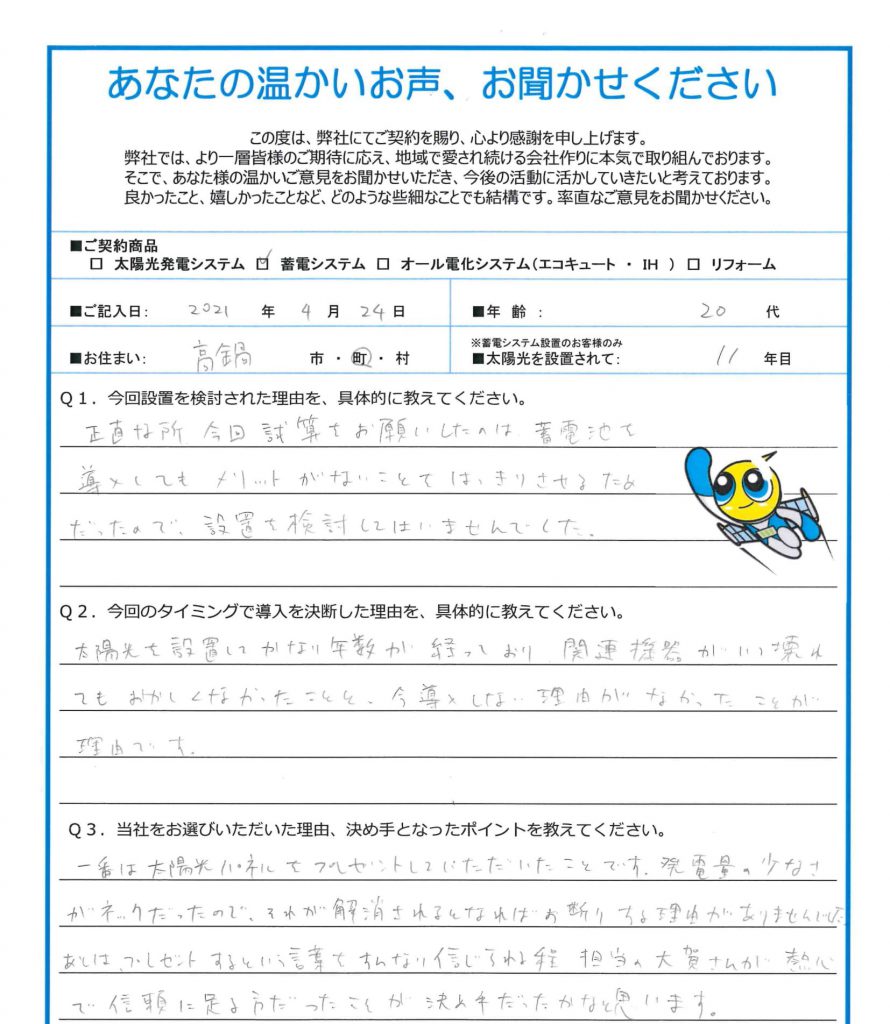 あなたの温かいお声、お聞かせください
この度は、弊社にてご契約を賜り、心より感謝を申し上げます。
弊社では、より一層皆様のご期待に応え、地域で愛され続ける会社作りに本気で取り組んでおります。
そこで、あなた様の温かいご意見をお聞かせいただき、今後の活動に活かしていきたいと考えております。
良かったこと、嬉しかったことなど、どのような些細なことでも結構です。率直なご意見をお聞かせください。
■ご契約商品
□ 太陽光発電システム ☑ 蓄電システム □ オール電化システム(エコキュート ・ IH ) □ リフォーム
■ご記入日: 2021 年 4 月 24 日 ■年 齢 : 20 代
※蓄電システム設置のお客様のみ
■お住まい: 高鍋 市 ・ 町 ・ 村 ■太陽光を設置されて: 11 年目
Q1.今回設置を検討された理由を、具体的に教えてください。
正直な所 今回 試算をお願いしたのは 蓄電池を
導入しても メリットがないことをはっきりさせるため
だったので、設置を検討してはいませんでした。
Q2.今回のタイミングで導入を決断した理由を、具体的に教えてください。
太陽光を設置してかなり年数が経っており 関連機器がいつ壊れ
てもおかしくなかったことと、今導入しない理由がなかったことが
理由です。
Q3.当社をお選びいただいた理由、決め手となったポイントを教えてください。
一番は太陽光パネルをプレゼントしていただいたことです。発電量の少なさ
がネックだったので、それが解消されるとなればお断りする理由がありませんでした。
あとは、プレゼントするという言葉をすんなり信じられる程 担当の大賀さんが熱心
で信頼に足る方だったことが決め手だったかなと思います。